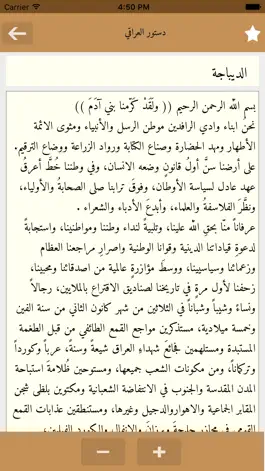 Carrier
4:50 PM
دستور العراقي
الديباجة
بسم الله الرحمن الرحيم (( ولَقَدْ كَرّمْنا بني آدَمَ ))
نحنُ ابناء وادي الرافدين موطن الرسل والأنبياء ومثوى الائمة
الأطهار ومهد الحضارة وصناع الكتابة ورواد الزراعة ووضاع الترقيم.
على أرضنا سنَّ أولُ قانونٍ وضعه الانسان، وفي وطننا خُطَّ أعرقُ
عهد عادل لسياسة الأوطان، وفوقَ ترابنا صلى الصحابةُ والأولياء،
ونظَّرَ الفلاسفةُ والعلماء، وأبدعَ الأدباء والشعراء .
عرفاناً منّا بحقِ الله علينا، وتلبيةً لنداء وطننا ومواطنينا، واستجابةً
لدعوةِ قياداتنا الدينية وقوانا الوطنية واصرارِ مراجعنا العظام
وزعمائنا وسياسيينا، ووسطَ مؤازرةٍ عالمية من اصدقائنا ومحبينا،
زحفنا لأول مرةٍ في تاريخنا لصناديق الاقتراع بالملايين، رجالاً
ونساءً وشيباً وشباناً في الثلاثين من شهر كانون الثاني من سنة الفين
وخمس ميلادية، مستذكرين مواجع القمع الطائفي من قبل الطغمة
المستبدة ومستلهمين فجائعَ شهداءِ العراق شيعةً وسنةً، عرباً وكورداً
وتركماناً، ومن مكونات الشعب جميعها، ومستوحين ظُلامةَ استباحة
المدن المقدسة والجنوب في الانتفاضة الشعبانية ومكتوين بلظى شجن
المقابر الجماعية والاهواروالدجيل وغيرها، ومستنطقين عذابات القمع
القومي في مجازرِ حلبجةَ وبرزانَ والانفال والكورد الفيليين،